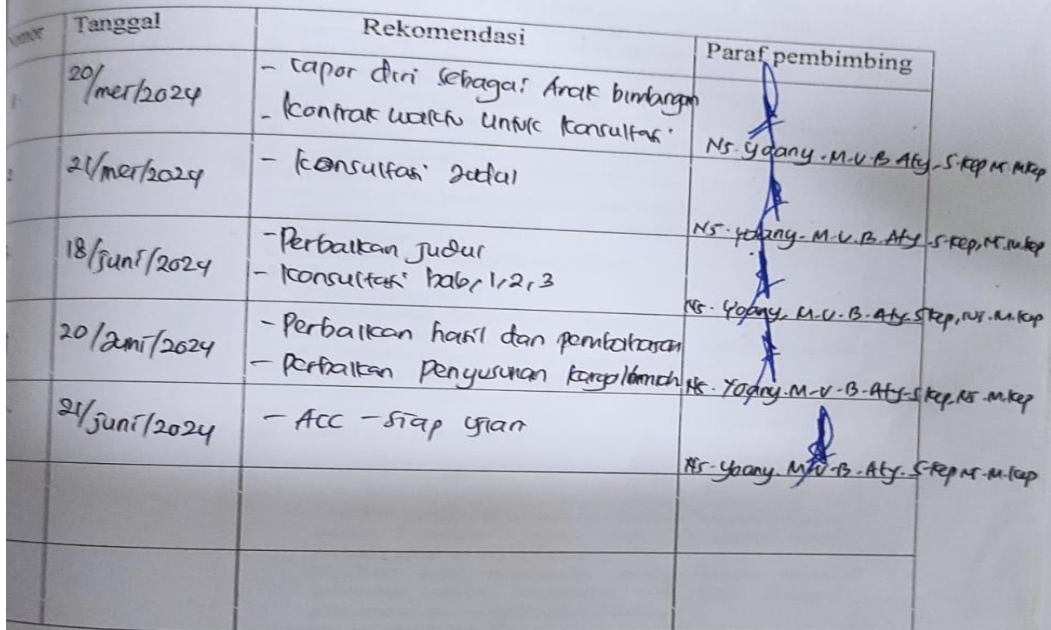 Nomor Tanggal Rekomendasi Paraf pembimbing
20/mei/2024 - Lapor diri sebagai Anak bimbangan
- Kontrak waktu untuk konsultasi
Ns. Yoany. M.V.B Aty. S.Kep Ns. M.Kep
21/mei/2024 - Konsultasi Judul
Ns. Yoany. M.V.B. Aty. S.Kep, Ns. M.Kep
18/juni/2024 - Perbaikan Judul
- Konsultasi bab, 1, 2, 3
Ns. Yoany. M.V.B. Aty. S.Kep, Ns. M.Kep
20/Juni/2024 - Perbaikan hasil dan pembahasan
- Perbaikan Penyusunan karya ilmiah
Ns. Yoany. M.V.B. Aty. S.Kep, Ns. M.Kep
21/juni/2024 - Acc - Siap Ujian
Ns. Yoany. M.V.B. Aty. S.Kep Ns. M.Kep